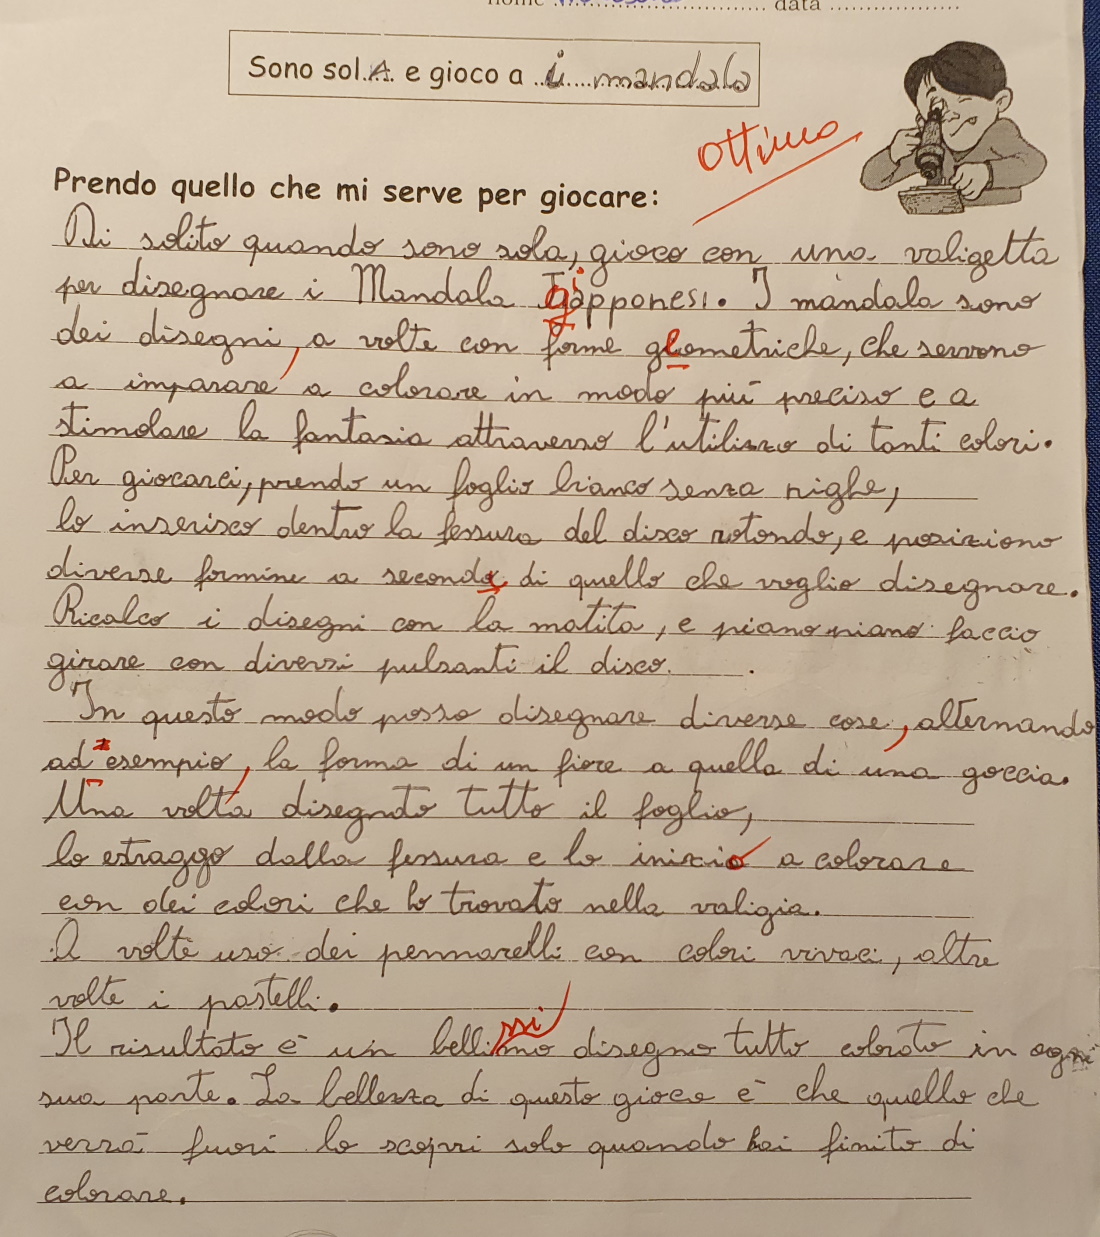 nome ........ data ........
Sono sol.A. e gioco a ..i....mandala
Ottimo
Prendo quello che mi serve per giocare:
Di solito quando sono sola, gioco con una valigetta
per disegnare i Mandala giapponesi. I mandala sono
dei disegni, a volte con forme geometriche, che servono
a imparare a colorare in modo più preciso e a
stimolare la fantasia attraverso l'utilizzo di tanti colori.
Per giocarci, prendo un foglio bianco senza righe,
lo inserisco dentro la fessura del disco rotondo, e posiziono
diverse formine a seconda di quello che voglio disegnare.
Ricalco i disegni con la matita, e piano piano faccio
girare con diversi pulsanti il disco.
In questo modo posso disegnare diverse cose, alternando
ad esempio, la forma di un fiore a quella di una goccia.
Una volta disegnato tutto il foglio,
lo estraggo dalla fessura e lo inizio a colorare
con dei colori che ho trovato nella valigia.
A volte uso dei pennarelli con colori vivaci, altre
volte i pastelli.
Il risultato è un bellissimo disegno tutto colorato in ogni
sua parte. La bellezza di questo gioco è che quello che
verrà fuori lo scopri solo quando hai finito di
colorare.